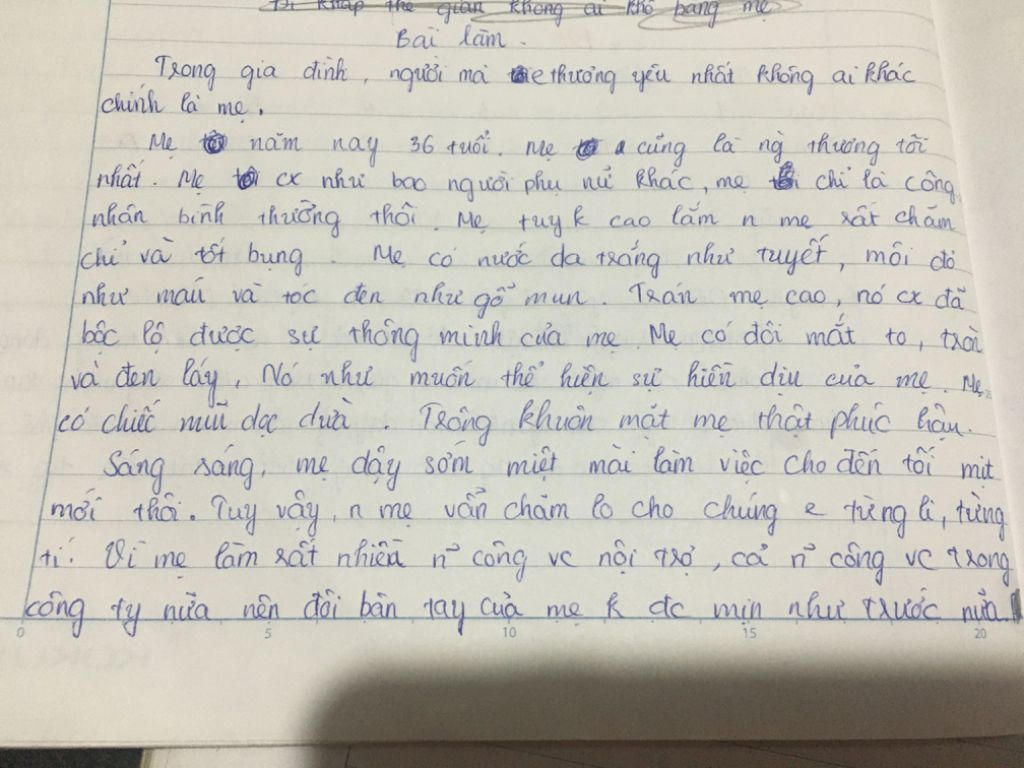 Đi khắp thế gian không ai khổ bằng mẹ
Bài làm.
Trong gia đình, người mà e thương yêu nhất không ai khác
chính là mẹ.
Mẹ năm nay 36 tuổi. Mẹ cũng là ng thương tôi
nhất. Mẹ cx như bao người phụ nữ khác, mẹ chỉ là công
nhân bình thường thôi. Mẹ tuy k cao lắm n mẹ rất chăm
chỉ và tốt bụng. Mẹ có nước da trắng như tuyết, môi đỏ
như máu và tóc đen như gỗ mun. Trán mẹ cao, nó cx đã
bộc lộ được sự thông minh của mẹ. Mẹ có đôi mắt to, tròn
và đen láy, Nó như muốn thể hiện sự hiền dịu của mẹ. Mẹ
có chiếc mũi dọc dừa. Trông khuôn mặt mẹ thật phúc hậu.
Sáng sáng, mẹ dậy sớm miệt mài làm việc cho đến tối mịt
mới thôi. Tuy vậy, n mẹ vẫn chăm lo cho chúng e từng li, từng
tí. Vì mẹ làm rất nhiều n~ công vc nội trợ, cả n~ công vc trong
công ty nữa nên đôi bàn tay của mẹ k đc mịn như trước nữa.
0 5 10 15 20